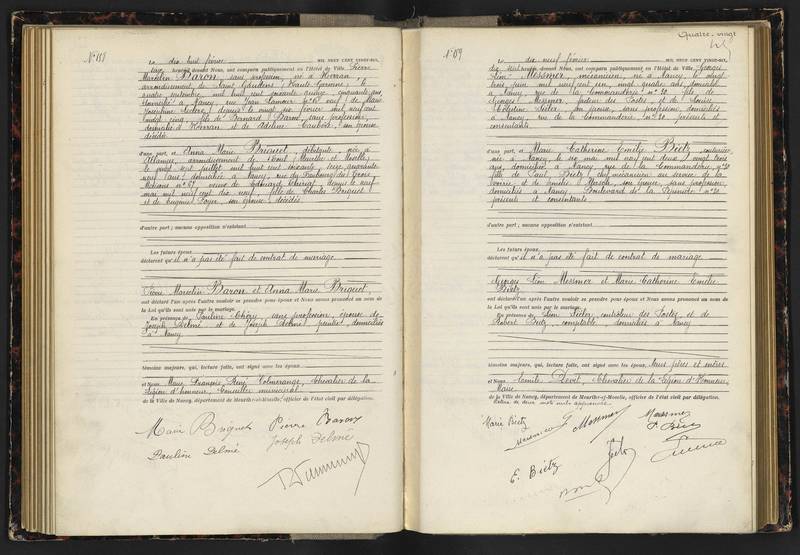 N° 158
Le dix huit février MIL NEUF CENT VINGT-SIX,
devant Nous, ont comparu publiquement en l'Hôtel de Ville Pierre
Marcelin BARON, sans profession, né à
arrondissement de Saint Gaudens (Haute Garonne) le
quatre septembre mil huit cent soixante quinze, cinquante ans,
domicilié à Nancy, rue Jean Lamour n° veuf de Marie
Joséphine depuis le vingt six février mil neuf cent
vingt cinq, fils de Bernard Baron, sans profession,
domicilié à et de son épouse
décédée
d'une part, et Anna Marie Briquet, débitante, née à
Allamps, arrondissement de Toul (Meurthe et Moselle)
le vingt sept juillet mil huit cent soixante seize, quarante
neuf ans, domiciliée à Nancy, rue du Faubourg des Trois
Maisons n° 67, veuve de Edouard depuis le neuf
mai mil neuf cent dix neuf, fille de Charles Briquet
et de Eugénie son épouse, décédés
d'autre part ; aucune opposition n'existant
Les futurs époux
déclarent qu'il n'a pas été fait de contrat de mariage
Pierre Marcelin Baron et Anna Marie Briquet,
ont déclaré l'un après l'autre vouloir se prendre pour époux et Nous avons prononcé au nom de
la Loi qu'ils sont unis par le mariage.
En présence de Pauline sans profession, épouse de
Joseph Delmé et de Joseph Delmé, domiciliés
à Nancy
témoins majeurs, qui, lecture faite, ont signé avec les époux,
et Nous Marie François René Chevalier de la
Légion d'honneur, Conseiller municipal
de la Ville de Nancy, département de Meurthe-et-Moselle, officier de l'état civil par délégation.
Marie Briquet Pierre Baron
Pauline Delmé Joseph Delmé
Quatre-vingt
N° 159
Le dix neuf février MIL NEUF CENT VINGT-SIX,
devant Nous, ont comparu publiquement en l'Hôtel de Ville Georges
Léon MESSMER, mécanicien, né à Nancy, le vingt
trois juin mil neuf cent un, vingt quatre ans, domicilié
à Nancy, rue de la Commanderie n° 20, fils de
Georges Messmer, facteur des Postes, et de Louise
son épouse, sans profession, domiciliés
à Nancy, rue de la Commanderie, n° 20, présents et
consentants
d'une part, et Marie Catherine Emélie Bietz, couturière,
née à Nancy, le dix mai mil neuf cent deux, vingt trois
ans, domiciliée à Nancy, rue de la Commanderie, n° 20
fille de Paul Bietz, chef mécanicien au service de la
voirie, et de Emélie son épouse, sans profession,
domiciliés à Nancy, Boulevard de la Pépinière n° 20
présents et consentants
d'autre part ; aucune opposition n'existant
Les futurs époux
déclarent qu'il n'a pas été fait de contrat de mariage
Georges Léon Messmer et Marie Catherine Emélie
Bietz,
ont déclaré l'un après l'autre vouloir se prendre pour époux et Nous avons prononcé au nom de
la Loi qu'ils sont unis par le mariage.
En présence de Léon contrôleur des Postes et de
Robert Bietz, comptable, domiciliés à Nancy
témoins majeurs, qui, lecture faite, ont signé avec les époux, leurs pères et mères
et Nous Camille Chevalier de la Légion d'Honneur,
Maire
de la Ville de Nancy, département de Meurthe-et-Moselle, officier de l'état civil par délégation.
Marie Bietz Messmer Messmer
E. Bietz